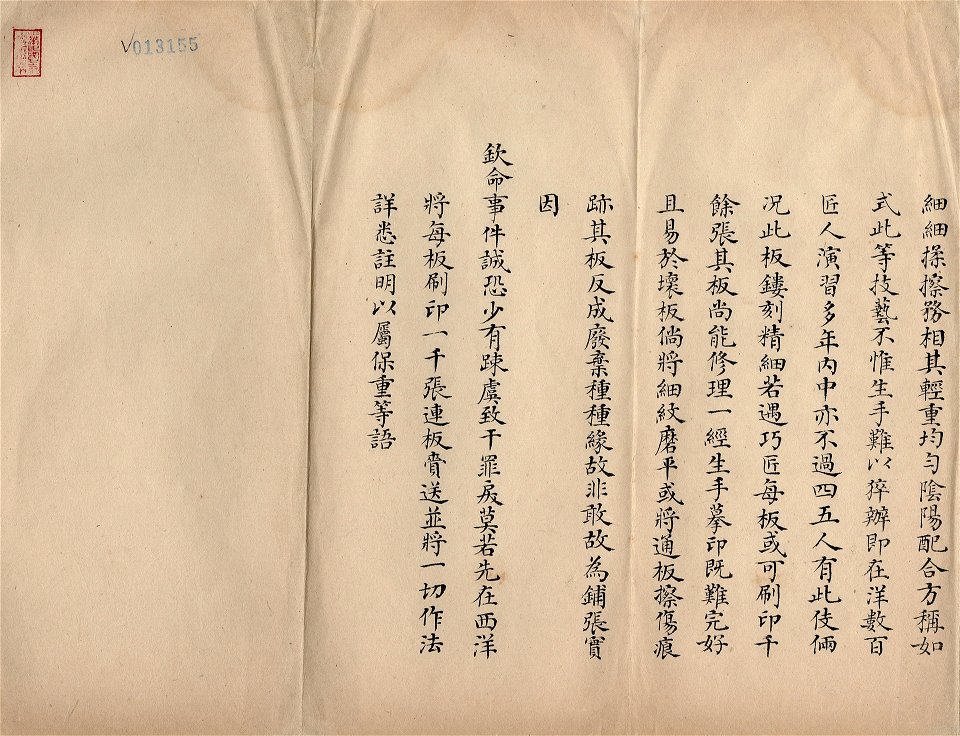 細細揉擦務相其輕重均勻陰陽配合方稱如
式此等技藝不惟生手難以猝辦即在洋數百
匠人演習多年內中亦不過四五人有此伎倆
况此板鏤刻精細若遇巧匠每板或可刷印千
餘張其板尚能修理一經生手摹印既難完好
且易於壞板倘將細紋磨平或將通板擦傷痕
跡其板反成廢棄種種緣故非敢故為鋪張實
因
欽命事件誠恐少有踈虞致干罪戾莫若先在西洋
將每板刷印一千張連板賫送並將一切作法
詳悉註明以屬保重等語
V013155